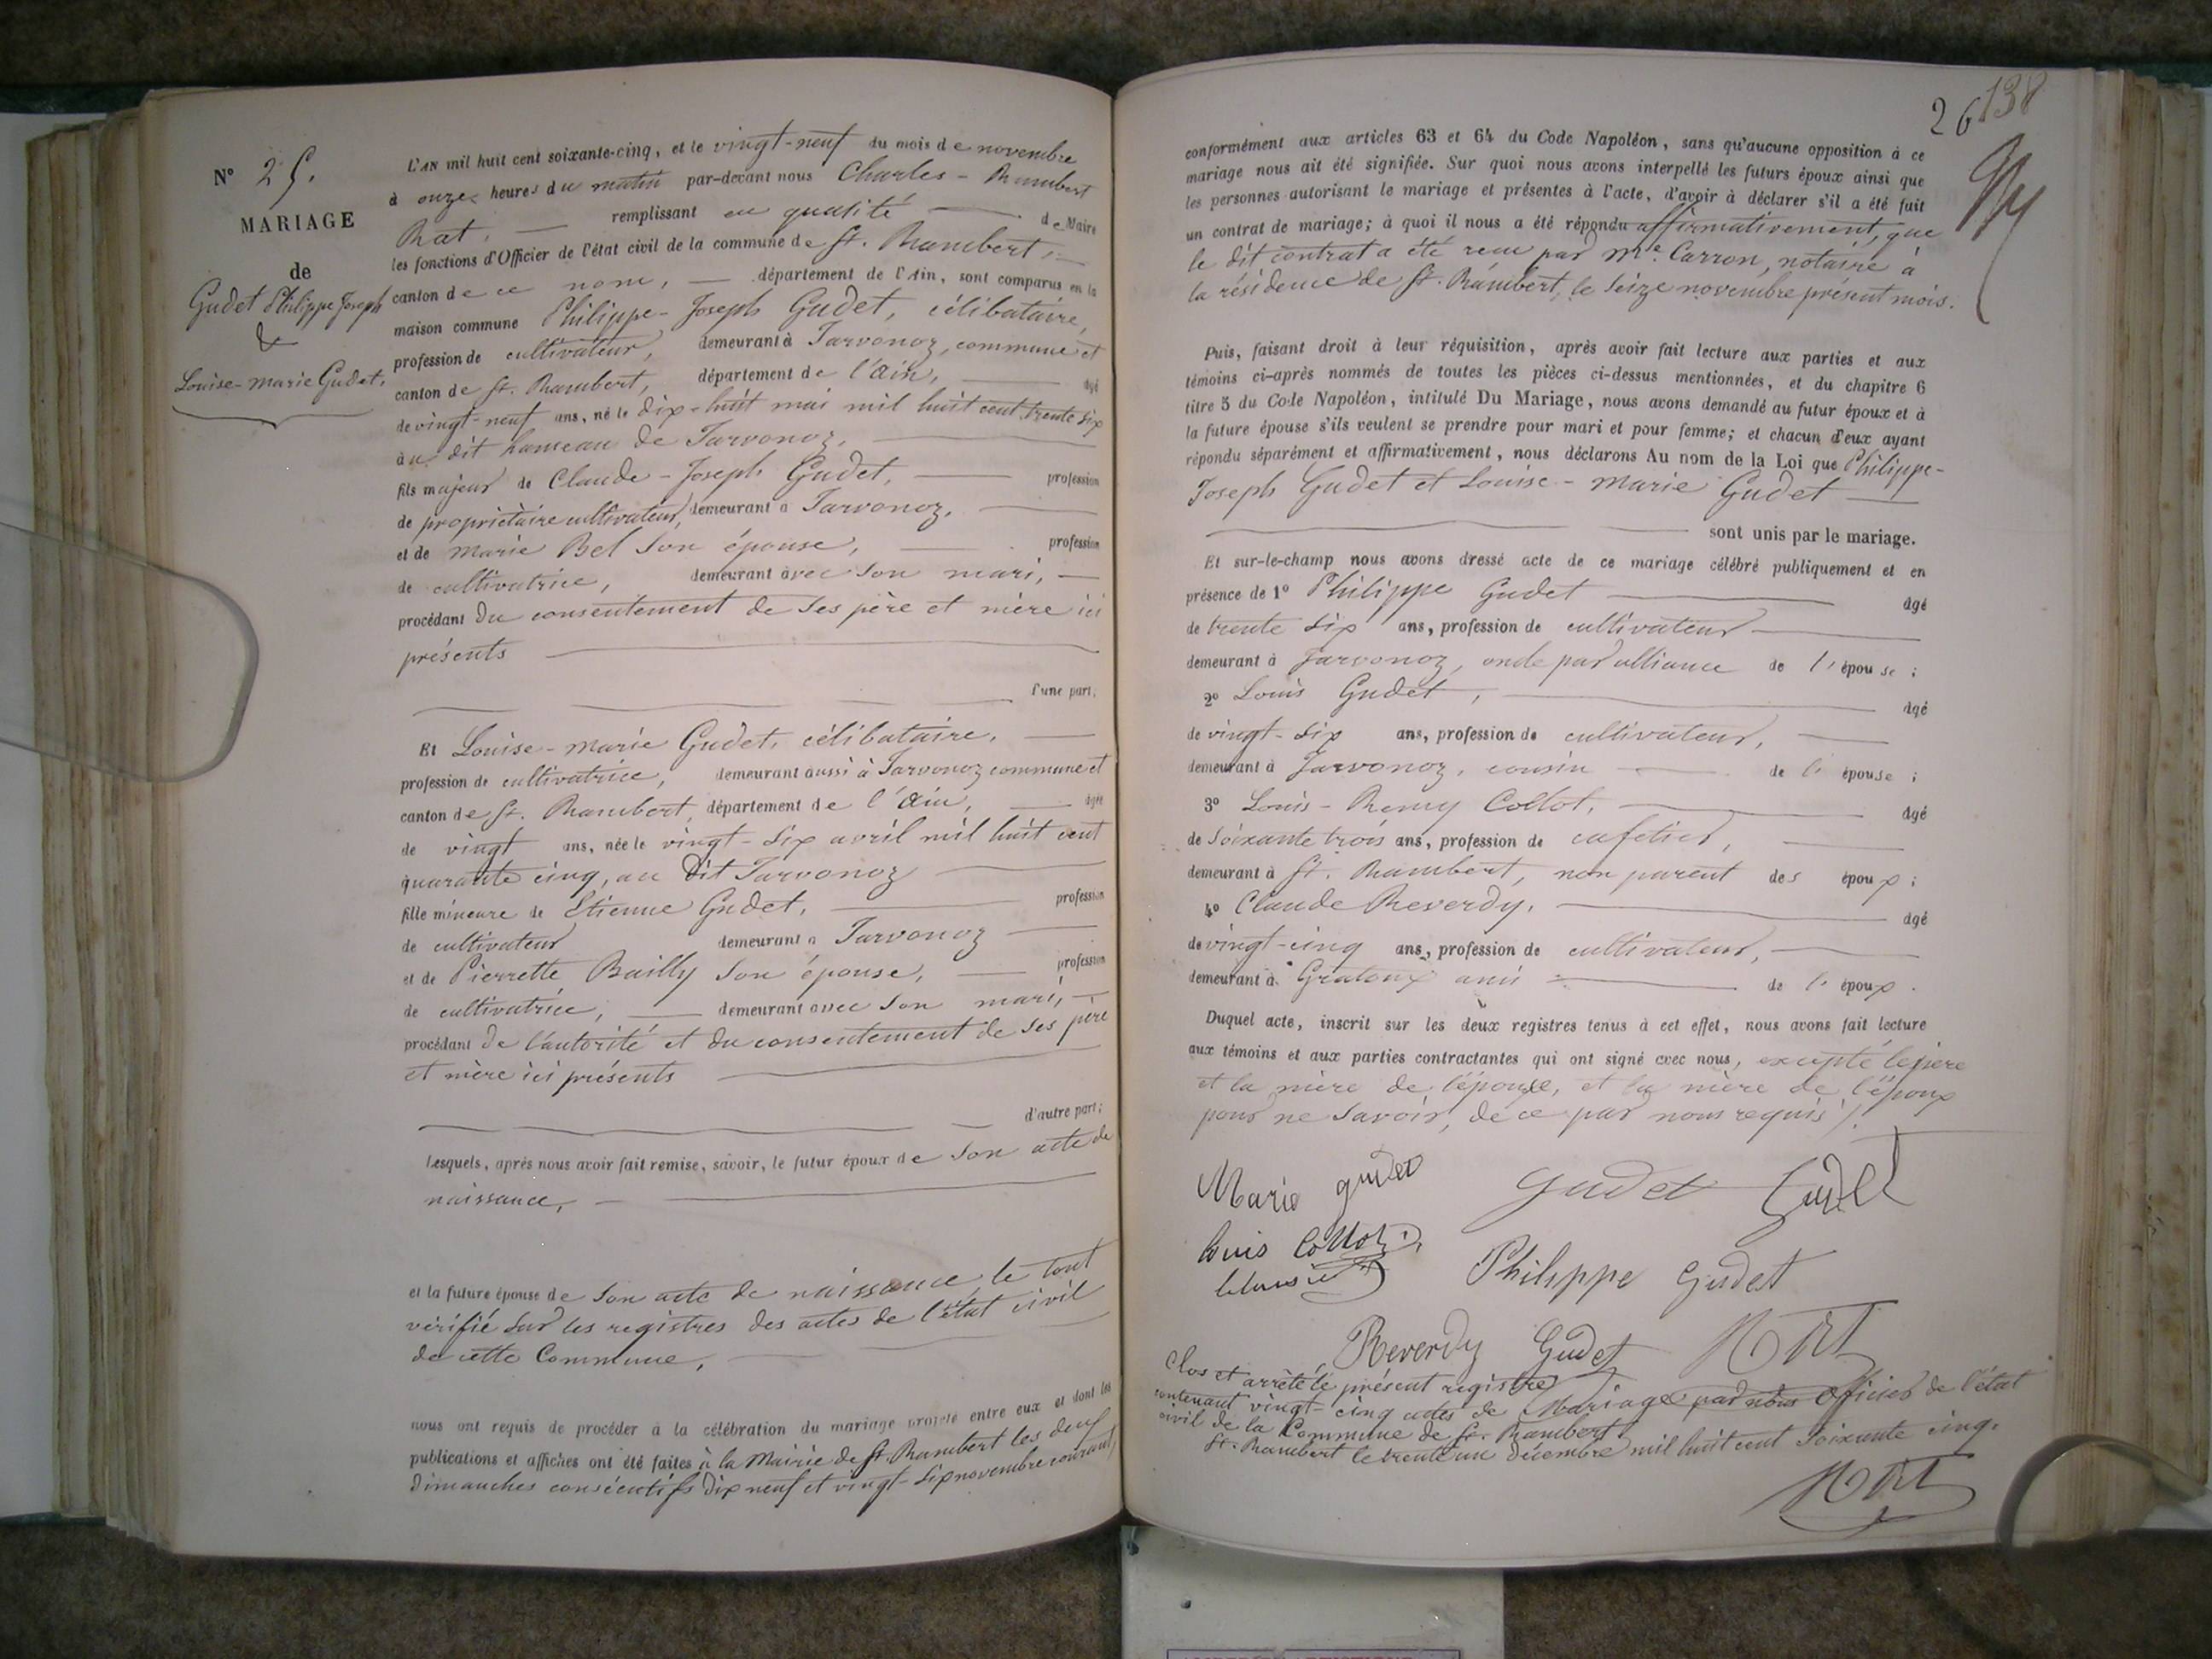 N° 25.
MARIAGE
de
Gudet Philippe Joseph
&
Louise-marie Gudet.
L'AN mil huit cent soixante-cinq, et le vingt-neuf du mois de novembre
à onze heures du matin par-devant nous Charles-Rambert
Rat, remplissant en qualité de Maire
les fonctions d'Officier de l'état civil de la commune de St. Rambert,
canton de ce nom, département de l'Ain, sont comparus en la
maison commune Philippe-Joseph Gudet, célibataire,
profession de cultivateur, demeurant à Jarvonoz, commune et
canton de St. Rambert, département de l'ain, âgé
de vingt-neuf ans, né le dix-huit mai mil huit cent trente six
au dit hameau de Jarvonoz,
fils majeur de Claude-Joseph Gudet, profession
de propriétaire cultivateur, demeurant à Jarvonoz,
et de marie Bel son épouse, profession
de cultivatrice, demeurant avec son mari,
procédant du consentement de ses père et mère ici
présents
d'une part,
Et Louise-marie Gudet, célibataire,
profession de cultivatrice, demeurant aussi à Jarvonoz commune et
canton de St. Rambert, département de l'ain, âgée
de vingt ans, née le vingt-six avril mil huit cent
quarante cinq, au dit Jarvonoz
fille mineure de Etienne Gudet, profession
de cultivateur demeurant à Jarvonoz
et de Pierrette Bailly son épouse, profession
de cultivatrice, demeurant avec son mari,
procédant de l'autorité et du consentement de ses père
et mère ici présents
d'autre part;
Lesquels, après nous avoir fait remise, savoir, le futur époux de son acte de
naissance,
et la future épouse de son acte de naissance, le tout
vérifié sur les registres des actes de l'état civil
de cette Commune,
nous ont requis de procéder à la célébration du mariage projeté entre eux et dont les
publications et affiches ont été faites à la Mairie de St. Rambert les deux
dimanches consécutifs dix neuf et vingt-six novembre courant,
26 138
conformément aux articles 63 et 64 du Code Napoléon, sans qu'aucune opposition à ce
mariage nous ait été signifiée. Sur quoi nous avons interpellé les futurs époux ainsi que
les personnes autorisant le mariage et présentes à l'acte, d'avoir à déclarer s'il a été fait
un contrat de mariage; à quoi il nous a été répondu affirmativement, que
le dit contrat a été reçu par Me. Carron, notaire à
la résidence de St. Rambert, le seize novembre présent mois.
Puis, faisant droit à leur réquisition, après avoir fait lecture aux parties et aux
témoins ci-après nommés de toutes les pièces ci-dessus mentionnées, et du chapitre 6
titre 5 du Code Napoléon, intitulé Du Mariage, nous avons demandé au futur époux et à
la future épouse s'ils veulent se prendre pour mari et pour femme; et chacun d'eux ayant
répondu séparément et affirmativement, nous déclarons Au nom de la Loi que Philippe-
Joseph Gudet et Louise-marie Gudet
sont unis par le mariage.
Et sur-le-champ nous avons dressé acte de ce mariage célébré publiquement et en
présence de 1° Philippe Gudet âgé
de trente six ans, profession de cultivateur
demeurant à Jarvonoz, oncle par alliance de l'épouse;
2° Louis Gudet, âgé
de vingt-six ans, profession de cultivateur,
demeurant à Jarvonoz, cousin de l'épouse;
3° Louis-Remy Collot, âgé
de soixante trois ans, profession de cafetier,
demeurant à St. Rambert, non parent des époux;
4° Claude Reverdy, âgé
de vingt-cinq ans, profession de cultivateur,
demeurant à Gratoux ami de l'époux.
Duquel acte, inscrit sur les deux registres tenus à cet effet, nous avons fait lecture
aux témoins et aux parties contractantes qui ont signé avec nous, excepté le père
et la mère de l'épouse, et la mère de l'époux
pour ne savoir, de ce par nous requis /.
Marie gudet Gudet Gudet
louis Collot
Philippe Gudet
Reverdy Gudet Rat
Clos et arrêté le présent registre
contenant vingt-cinq actes de Mariage par nous officier de l'état
civil de la Commune de St. Rambert
St. Rambert le trente un décembre mil huit cent soixante cinq.
Rat